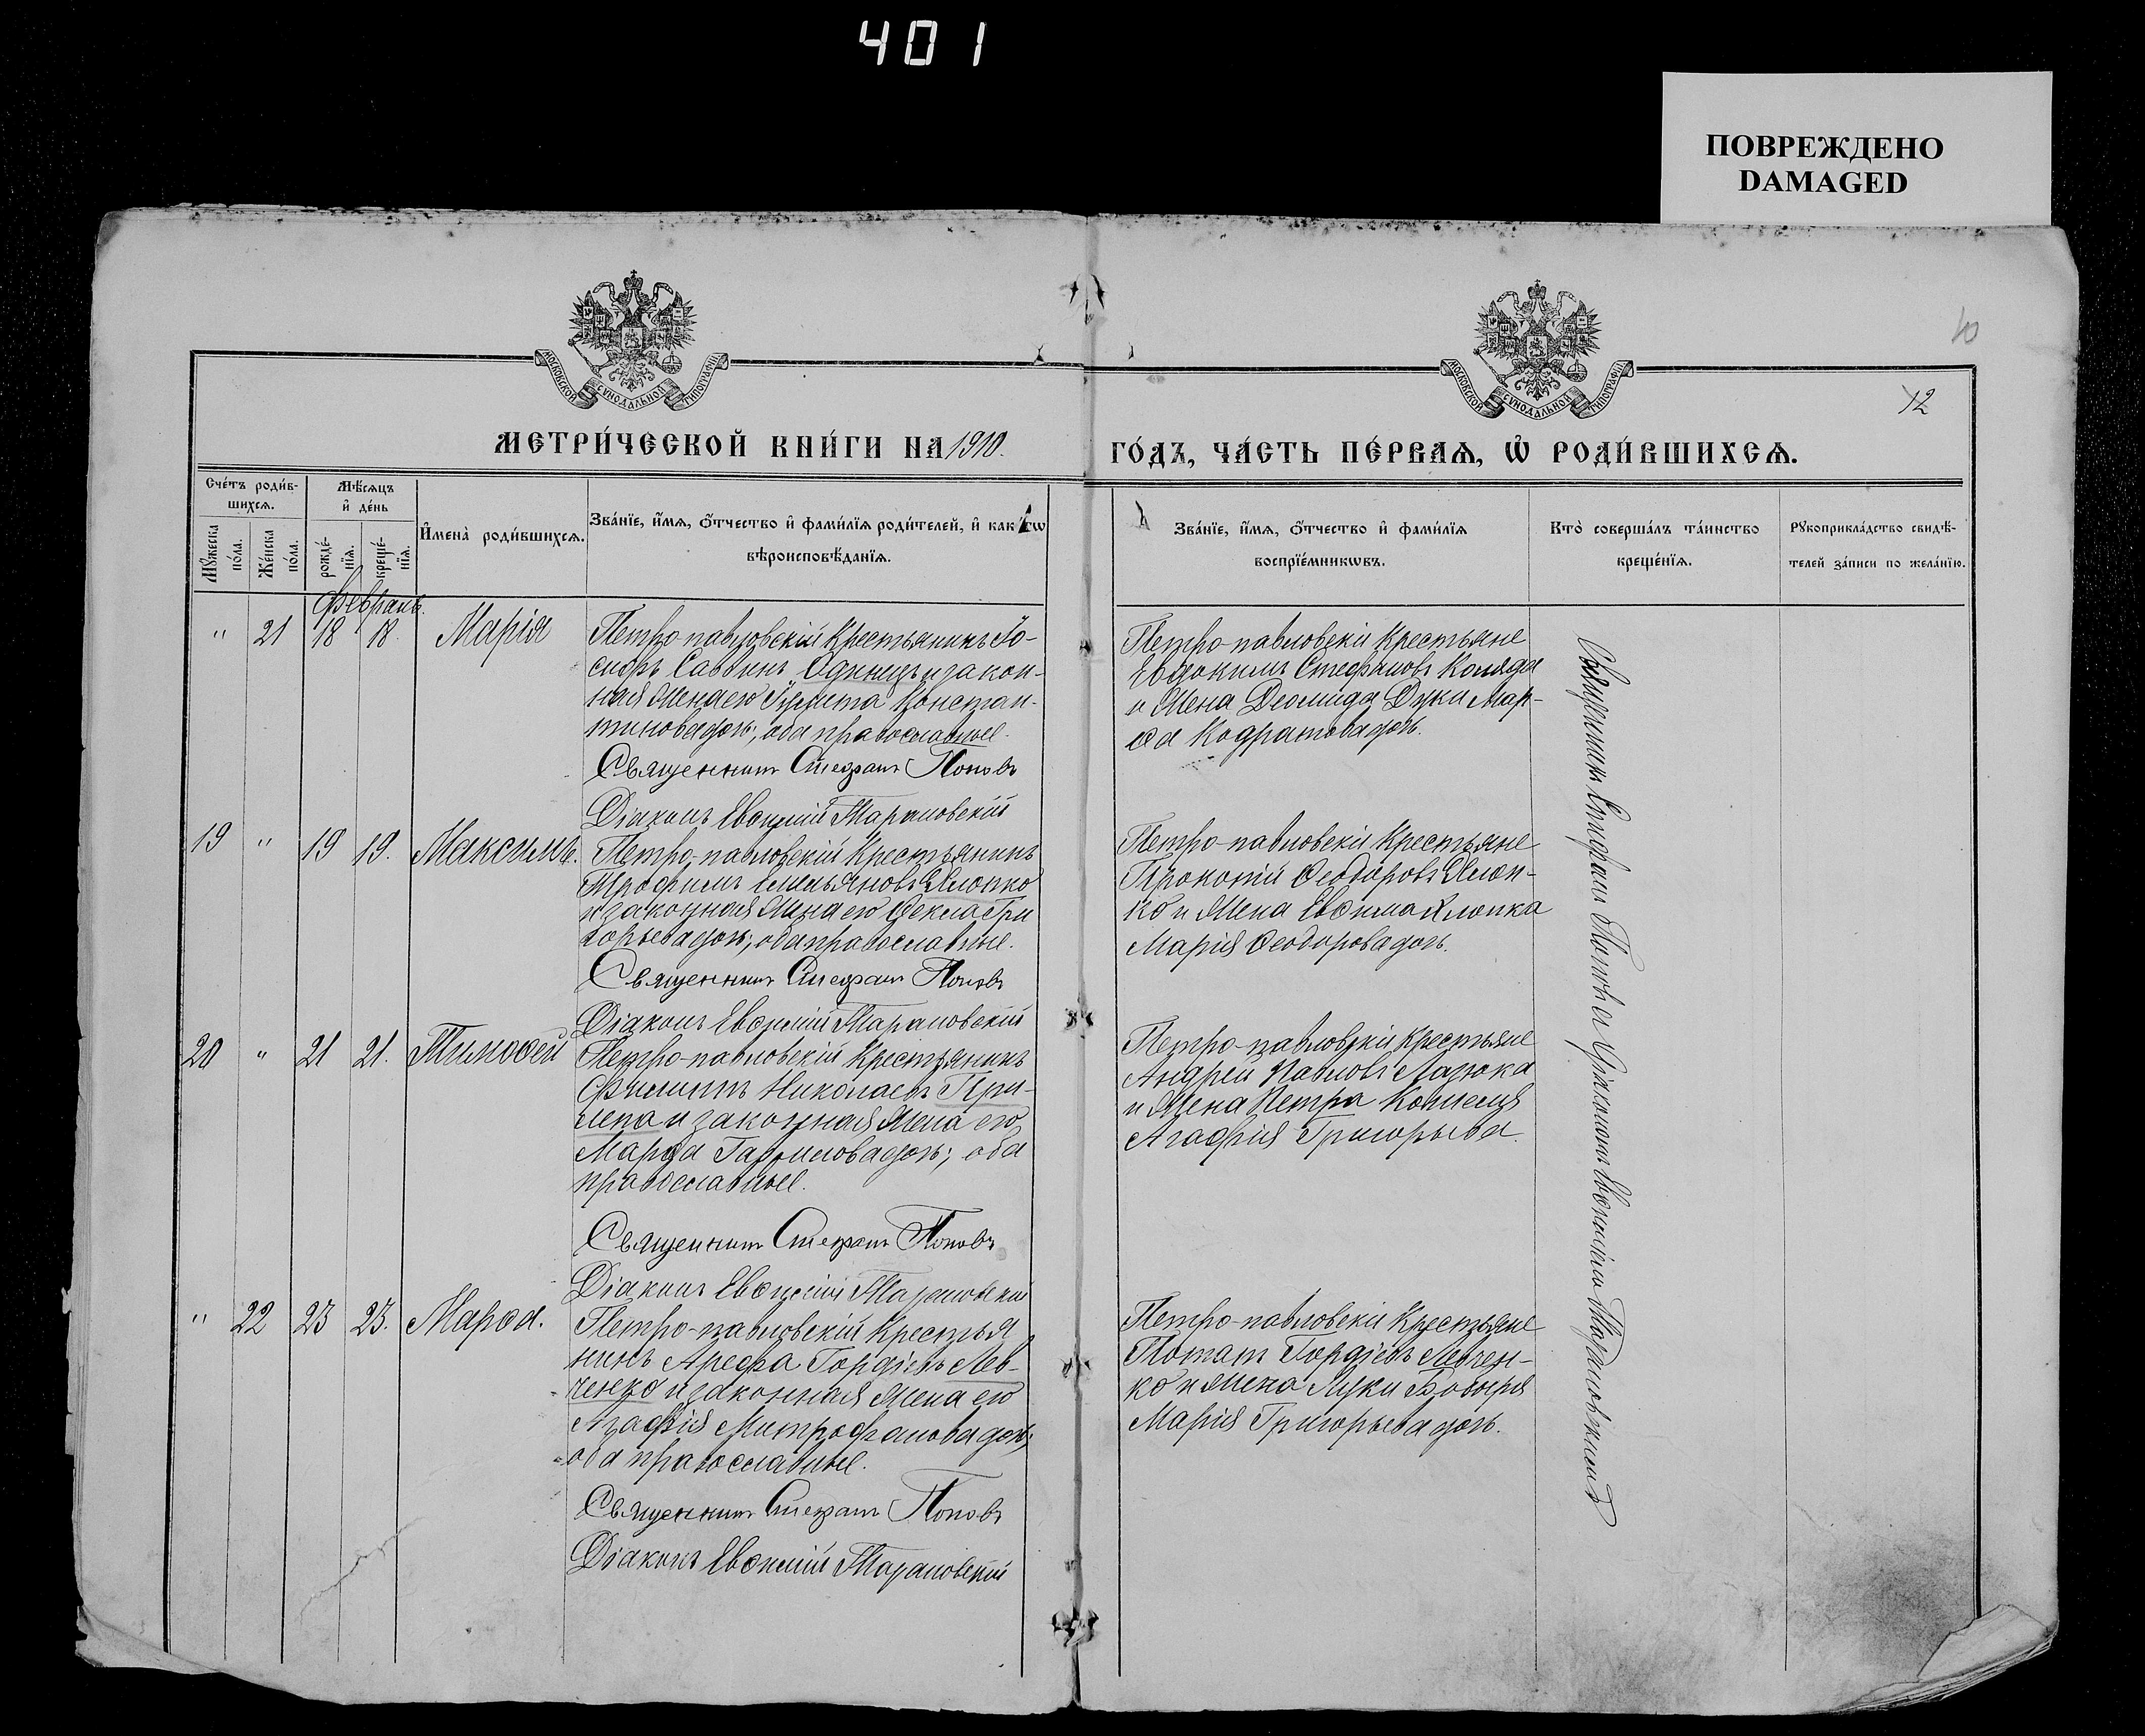 401
ПОВРЕЖДЕНО
DAMAGED
10
12
МОСКОВСКОЙ СѴНОДАЛЬНОЙ ТИПОГРАФІИ
МОСКОВСКОЙ СѴНОДАЛЬНОЙ ТИПОГРАФІИ
МЕТРИ́ЧЕСКОЙ КНИ́ГИ НА 1910.
ГО́ДЪ, ЧА́СТЬ ПЕ́РВАѦ, Ѽ РОДИ́ВШИХСѦ.
Сче́тъ роди́в-
шихсѧ.
Мꙋ́жеска по́ла.
Же́нска по́ла.
Мѣ́сѧцъ и҆ де́нь
рожде́-нїѧ.
креще́-нїѧ.
И҆мена̀ роди́вшихсѧ.
Зва́нїе, и҆́мѧ, ѻ҆́тчество и҆ фами́лїѧ роди́телей, и҆ како́гѡ
вѣроисповѣ́данїѧ.
Зва́нїе, и҆́мѧ, ѻ҆́тчество и҆ фами́лїѧ
воспрїе́мникѡвъ.
Кто̀ соверша́лъ та́инство
креще́нїѧ.
Рꙋкоприкла́дство свидѣ́-
телей за́писи по жела́нїю.
Февраль.
" 21 18 18. Марія
Петро-павловскій Крестьянинъ Іо-
сифъ Саввинъ Одинецъ и закон-
ная жена его Іулита Констан-
тинова дочь; оба православные.
Священникъ Стефанъ Поповъ
Діаконъ Евѳимій Тарановскій
Петро-павловскіи Крестьяне
Евдокимъ Стефановъ Коляда
и жена Деомида Дуки Мар-
ѳа Кодратова дочь.
19 " 19 19. Максимъ.
Петро-павловскій Крестьянинъ
Трофимъ Емельяновъ Хлопко
и законная жена его Ѳекла Гри
горьева дочь; оба православные.
Священникъ Стефанъ Поповъ
Діаконъ Евѳимій Тарановскій
Петро-павловскіи Крестьяне
Прокопій Ѳеодоровъ Хлоп-
ко и жена Евѳима Хлопка
Марія Ѳеодорова дочь.
20 " 21 21. Тимоѳей
Петро-павловскій Крестьянинъ
Филиппъ Николаевъ При-
лепа и законная жена его
Марѳа Гаврилова дочь; оба
православные.
Священникъ Стефанъ Поповъ
Діаконъ Евѳимій Тарановскій
Петро-павловскіи Крестьяне
Андрей Павловъ Лазюка
и жена Петра
Агафія Григорьева.
" 22 23 23. Марѳа.
Петро-павловскій Крестья
нинъ Арефа Гордіевъ Лев-
ченко и законная жена его
Агафія Митрофанова дочь;
оба православные.
Священникъ Стефанъ Поповъ
Діаконъ Евѳимій Тарановскій
Петро-павловскіи Крестьяне
Потапъ Гордіевъ Левчен-
ко и жена Луки Бобыря
Марія Григорьева дочь.
Священникъ Стефанъ Поповъ съ Діакономъ Евѳиміемъ Тарановскимъ